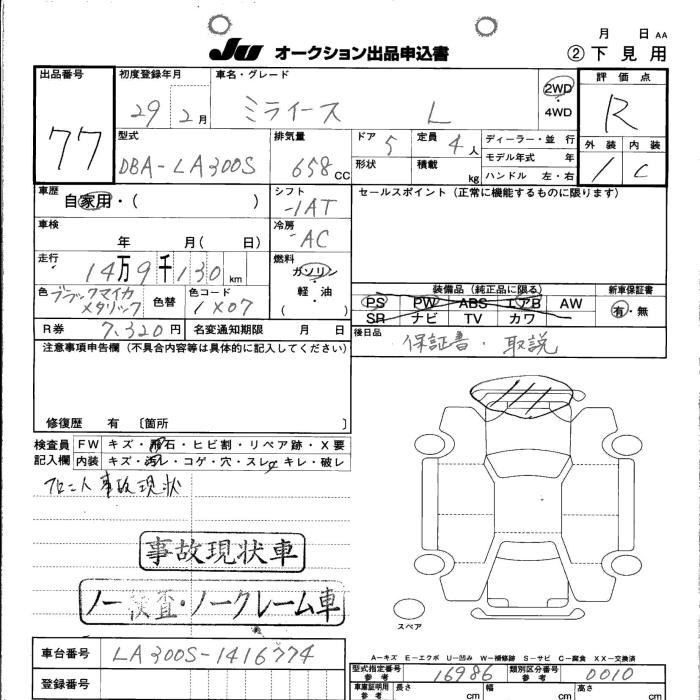 月 日 AA
JU オークション出品申込書 ②下見用
出品番号 初度登録年月 車名・グレード 評価点
77 29年 2月 ミライース L 2WD・4WD R
型式 排気量 ドア 5 定員 4人 ディーラー・並 行 外装 内装
DBA-LA300S 658CC 形状 積載 kg モデル年式 年 1 C
ハンドル 左・右
車歴 自家用・( ) シフト セールスポイント(正常に機能するものに限ります)
-1AT
車検 冷房
年 月( 日) AC
走行 燃料
14万9千130km ガソリン
軽・油
( )
色 ブラックマイカメタリック 色替 色コード 1X07
装備品(純正品に限る) 新車保証書
PS PW ABS エアB AW 有・無
SR ナビ TV カワ
R券 7,320円 名変通知期限 月 日 後日品 保証書・取説
注意事項申告欄(不具合内容等は具体的に記入してください)
修復歴 有 〔箇所 〕
検査員 FW キズ・飛石・ヒビ割・リペア跡・X要
記入欄 内装 キズ・汚レ・コゲ・穴・スレ・キレ・破レ
フロント事故現状
事故現状車
ノー検査・ノークレーム車
スペア
A-キズ E-エクボ U-凹み W-補修跡 S-サビ C-腐食 XX-交換済
車台番号 LA300S-1416774 型式指定番号 参考 16986 類別区分番号 参考 0010
登録番号 車庫証明用 参考 長さ cm 幅 cm 高さ cm